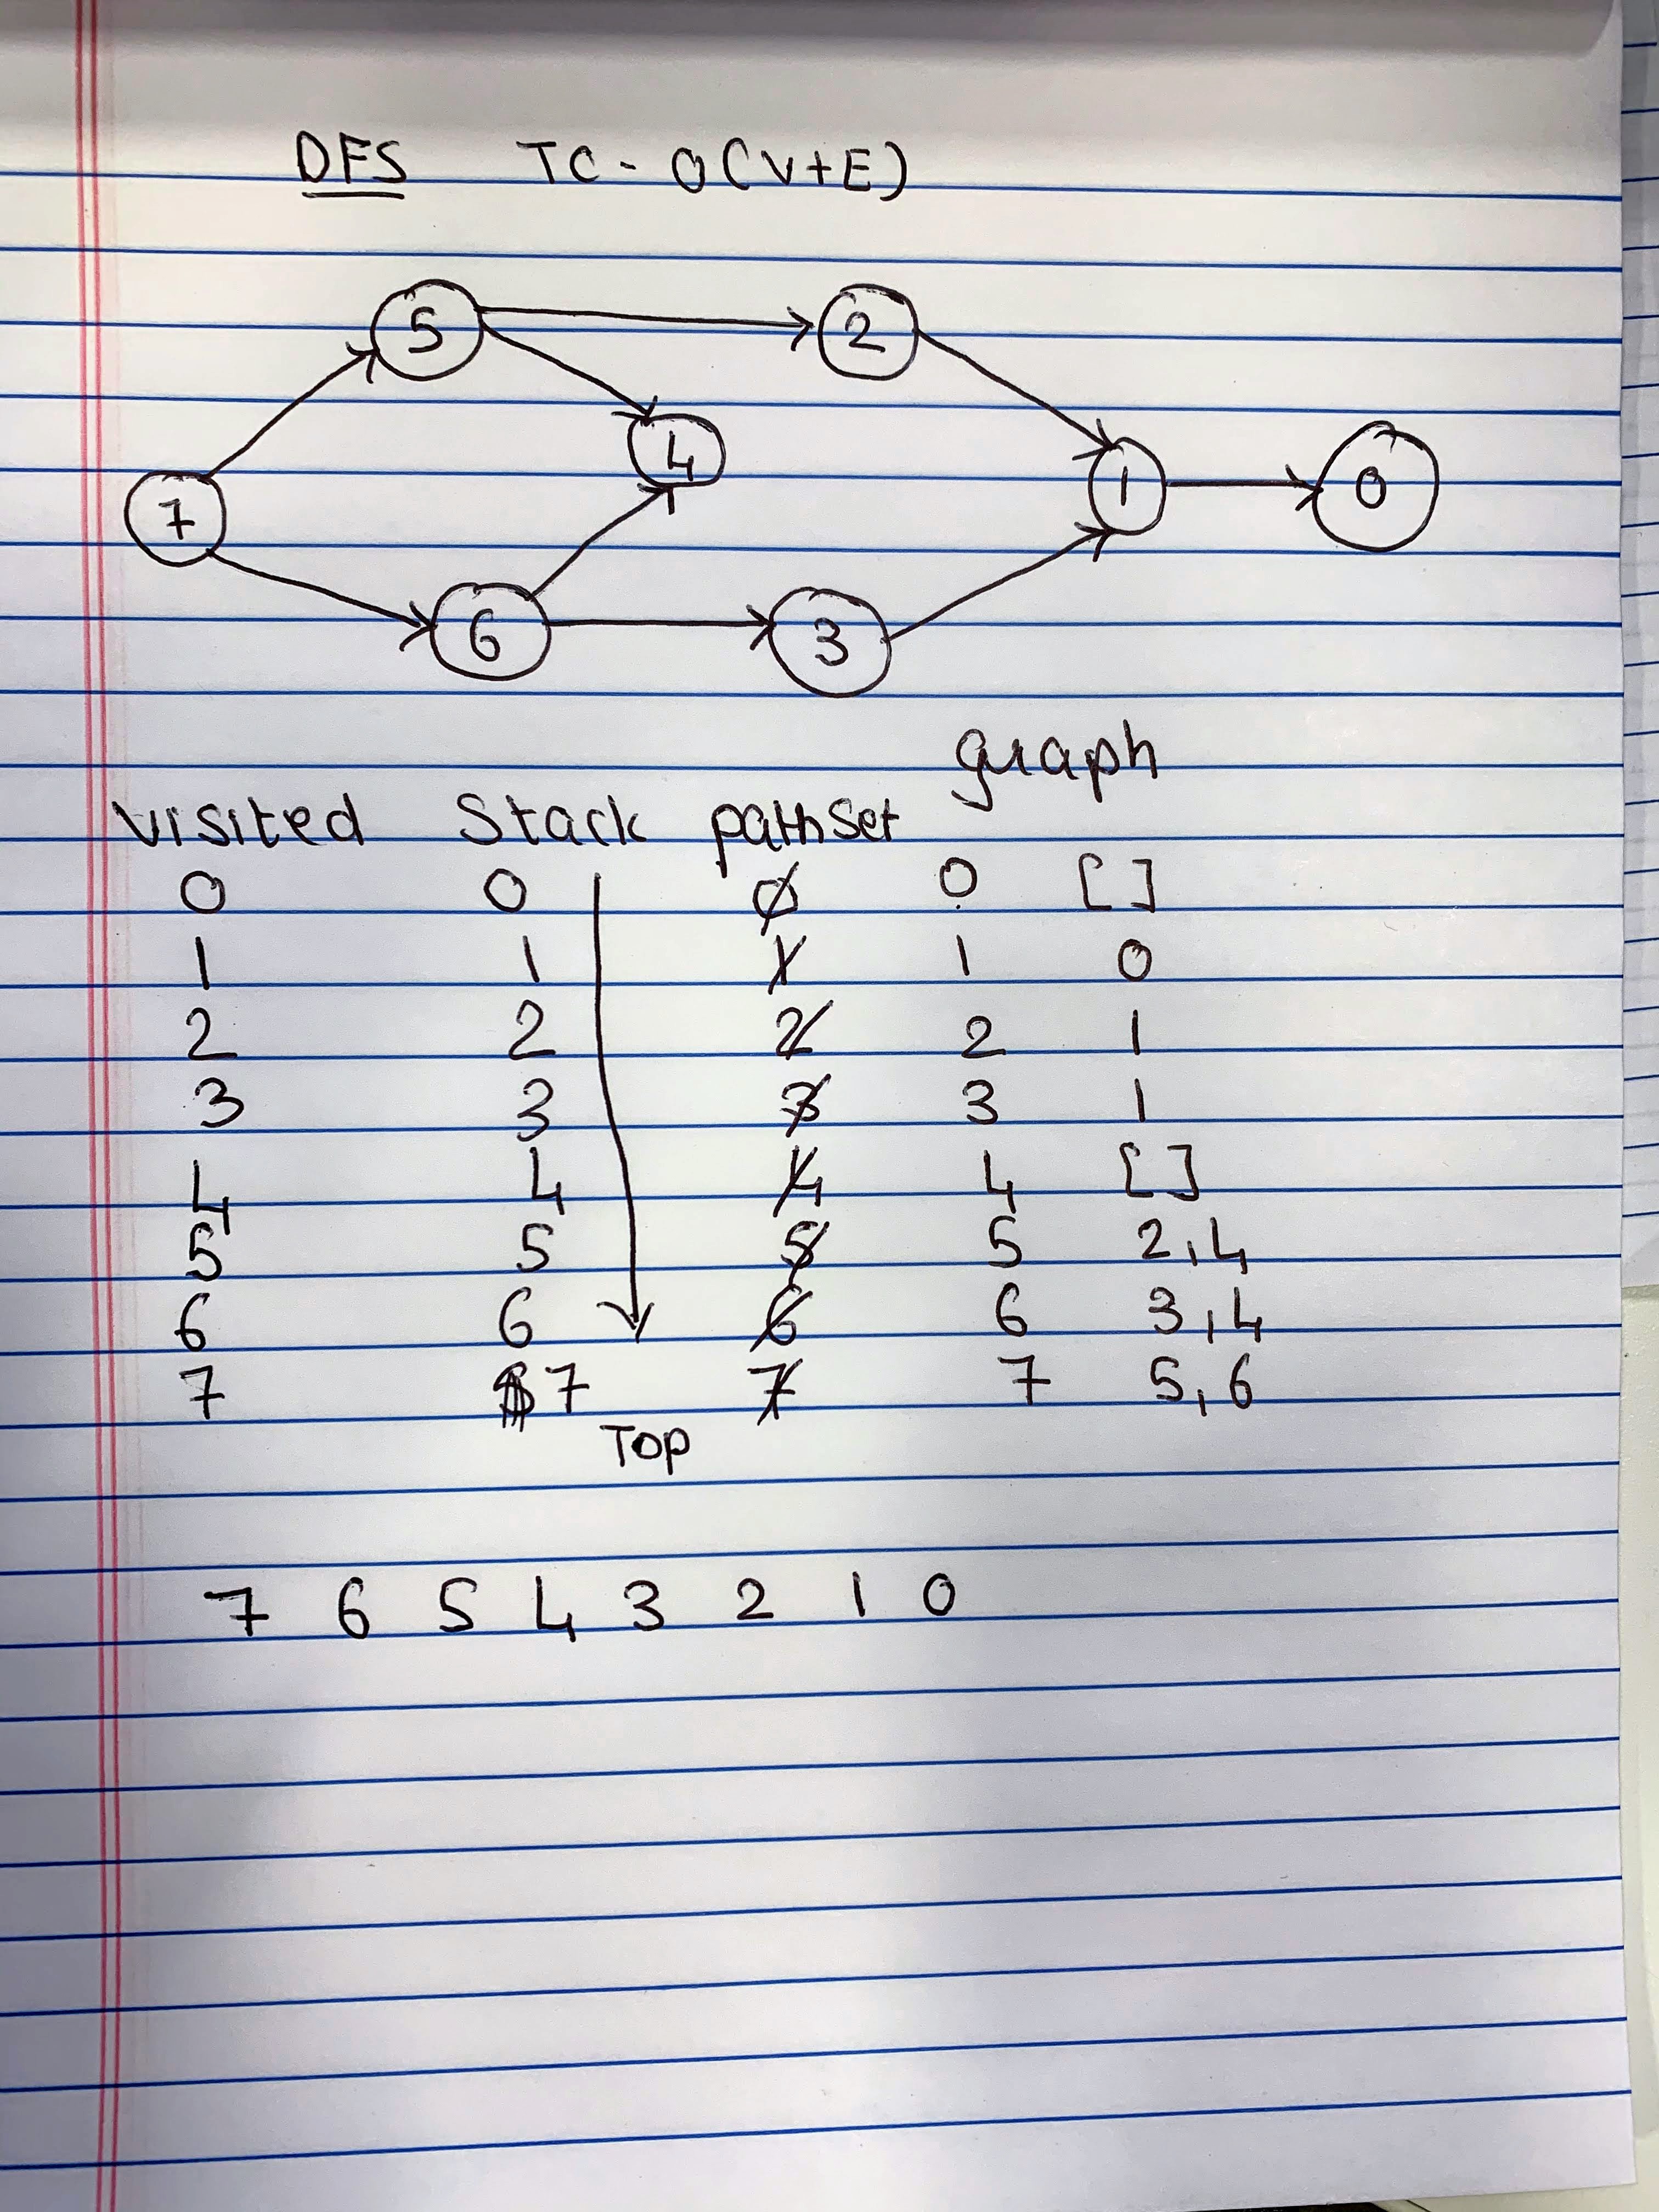 DFS TC - O(V+E)
5 2
4
7 1 0
6 3
graph
visited Stack pathset
0 0 0 0 []
1 1 1 1 0
2 2 2 2 1
3 3 3 3 1
4 4 4 4 []
5 5 5 5 2,4
6 6 6 6 3,4
7 7 7 7 5,6
TOP
7 6 5 4 3 2 1 0